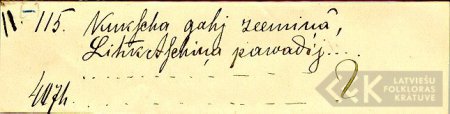 11 115. Kukscha gahj zeeminâ,
Lihkstschiņa pawadij....
407h.
LATVIEŠU
FOLKLORAS
KRĀTUVE